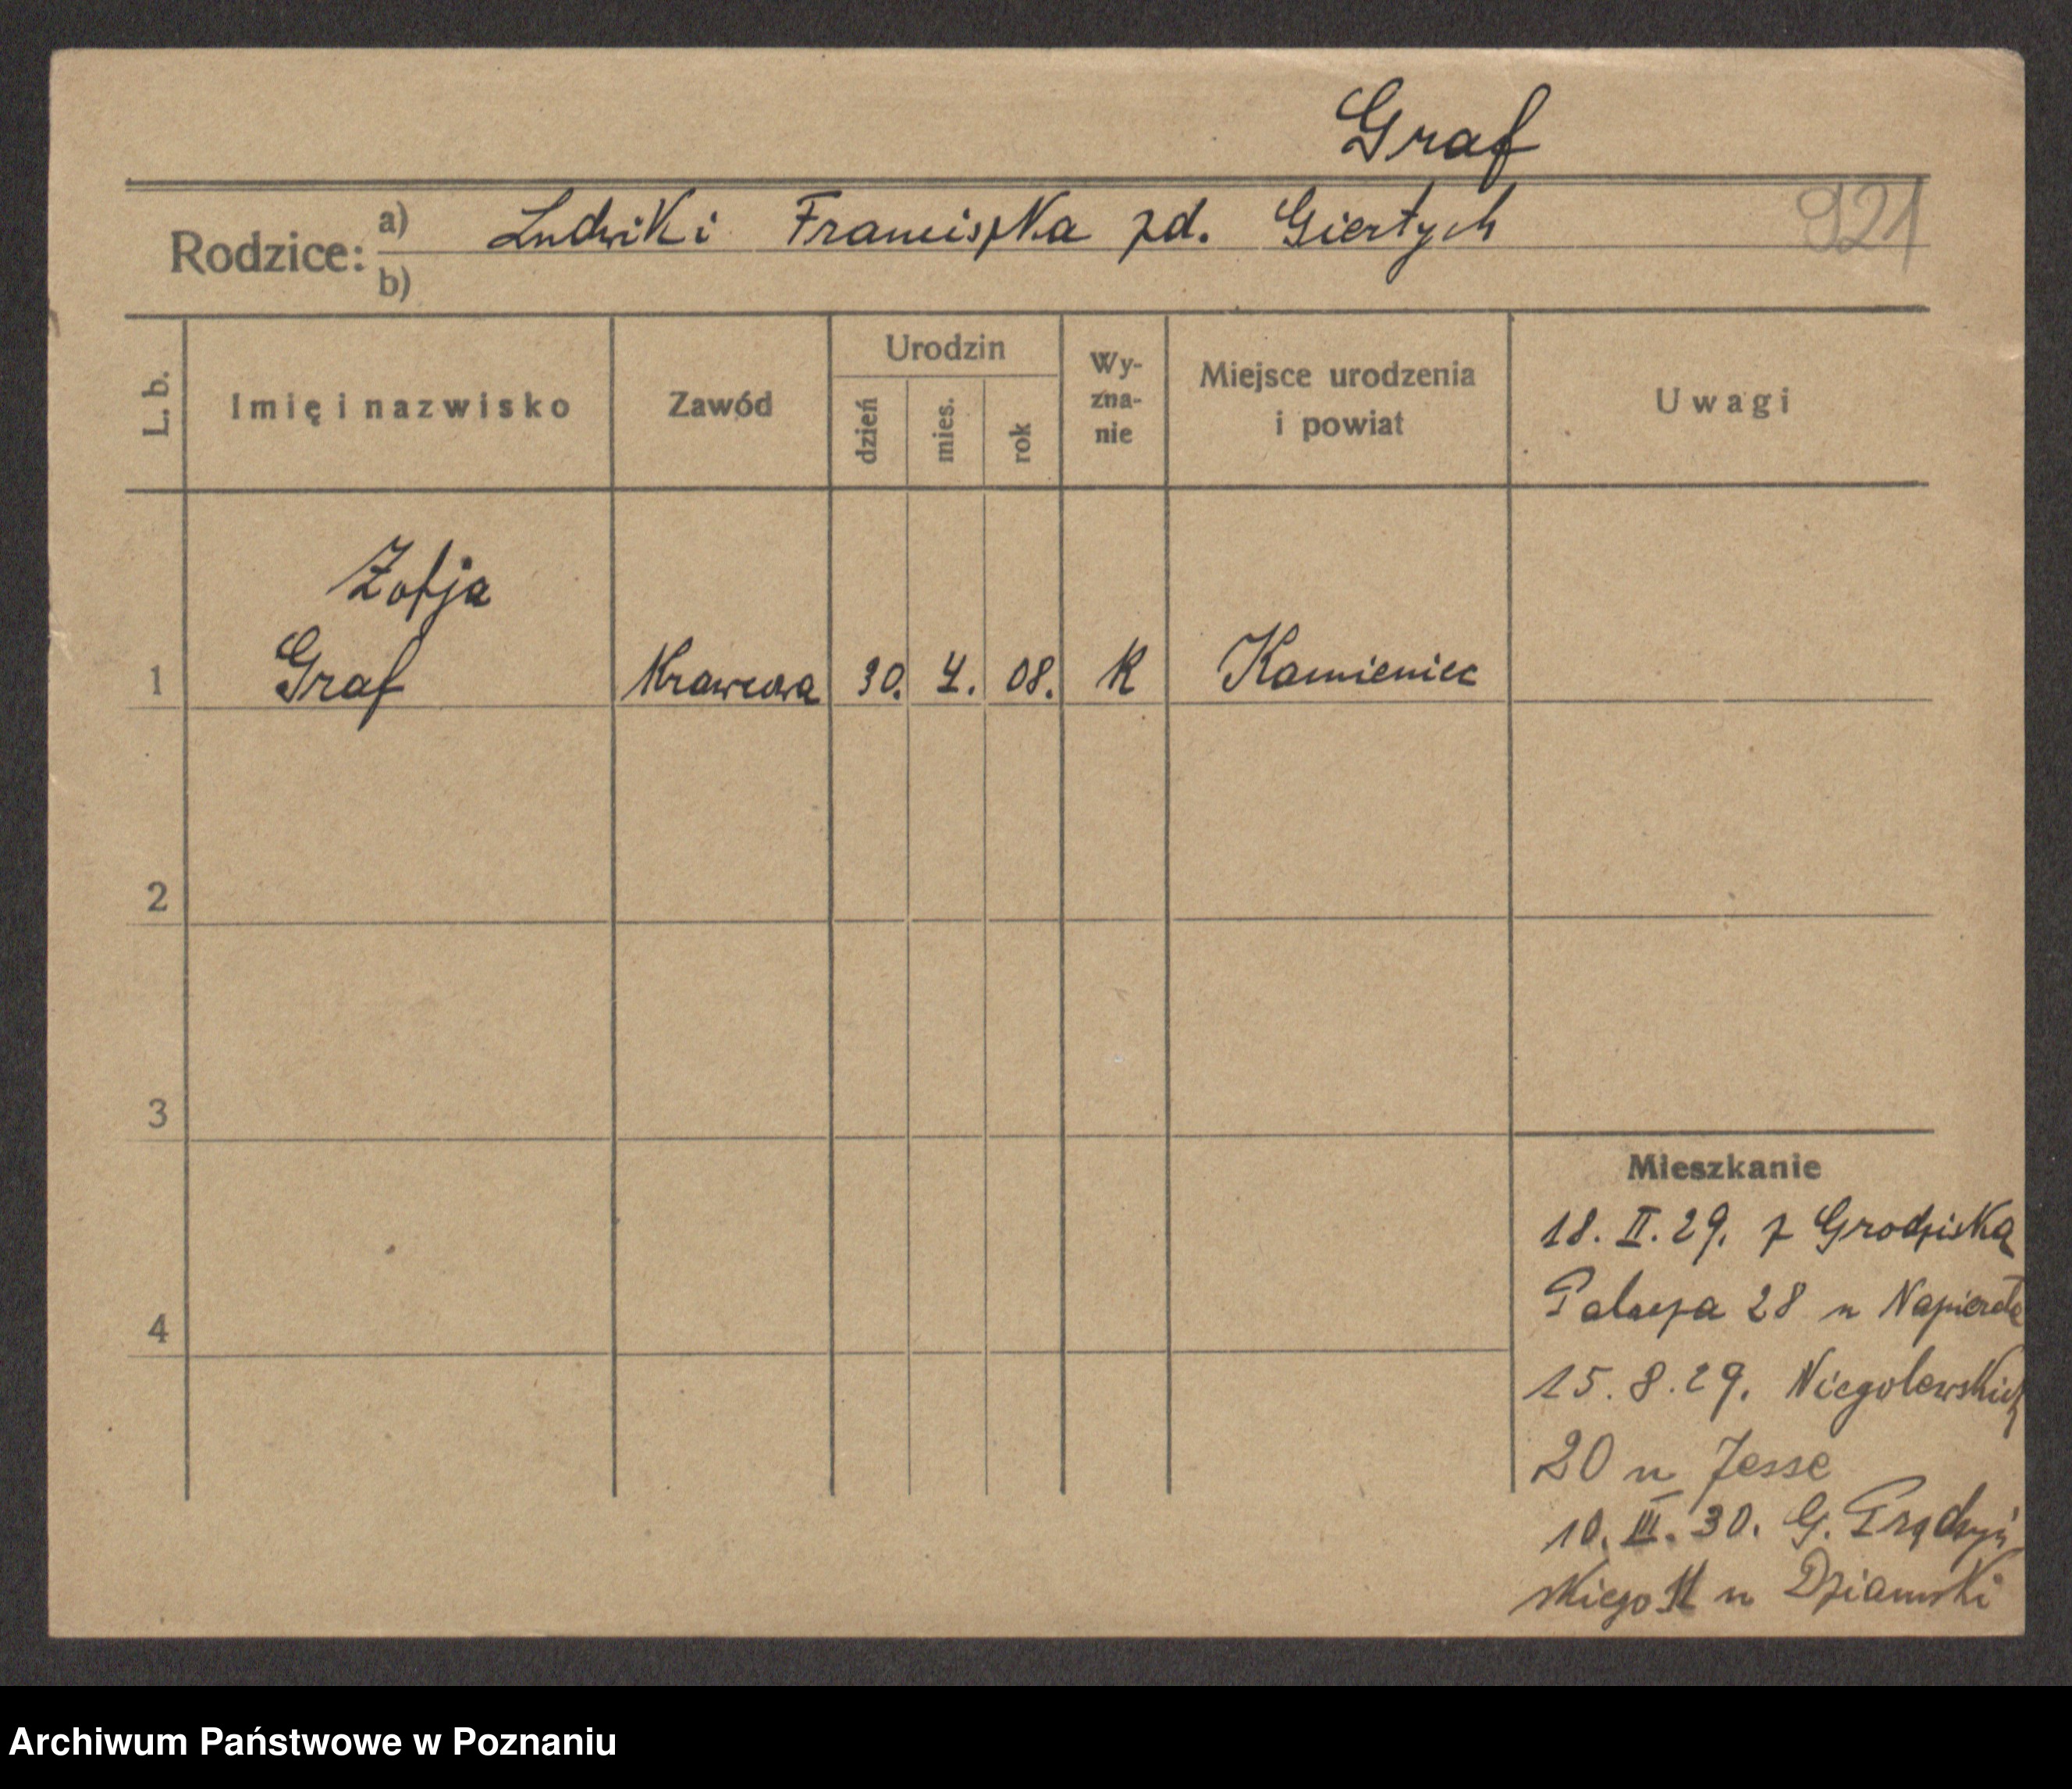 Graf
Rodzice: a) Ludwik i Franciszka zd. Giertych 921
b)
L. b. Imię i nazwisko Zawód Urodzin dzień mies. rok Wy-zna-nie Miejsce urodzenia i powiat Uwagi
Zofja
1 Graf Krawcowa 30. 4. 08. K Kamieniec
2
3
Mieszkanie
18. II. 29. z Grodziska
4 Palacza 28 u
15. 8. 29. Niegolewskich
20 u Jesse
10. III. 30. G. Prądzyń
skiego u Dziamski
Archiwum Państwowe w Poznaniu